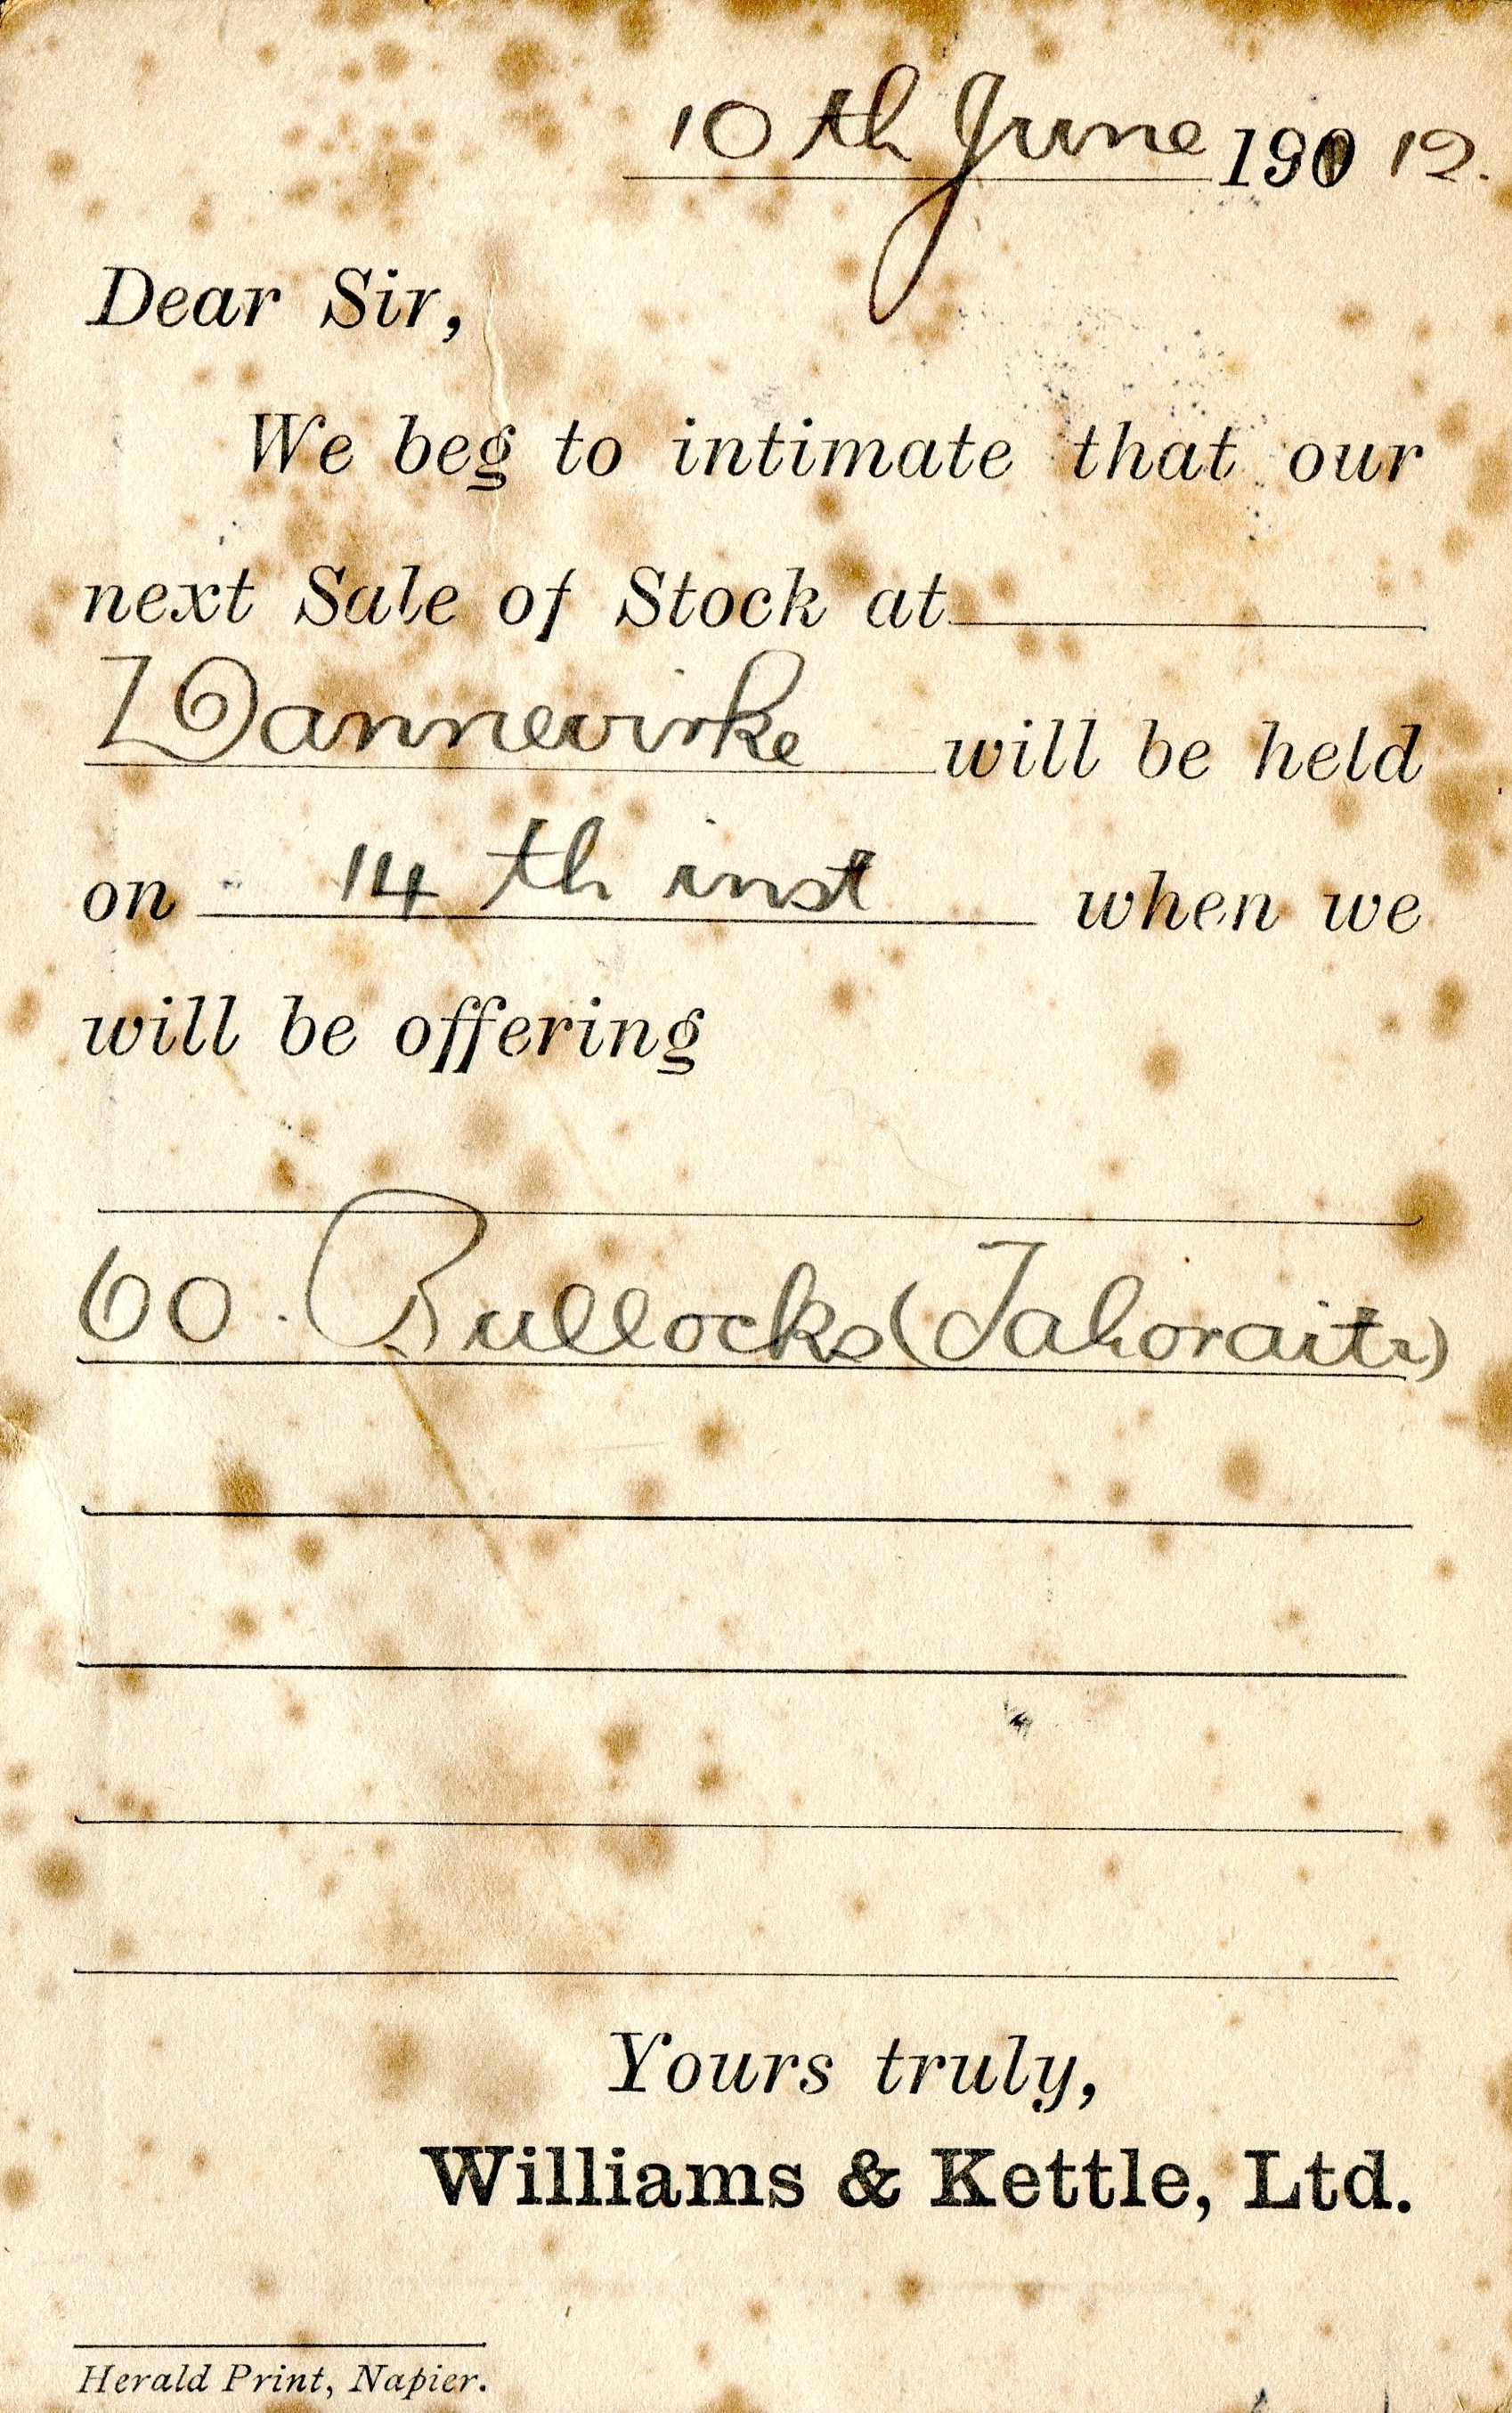 10th June 190 12.
Dear Sir,
We beg to intimate that our
next Sale of Stock at
Dannevirke will be held
on 14 th inst when we
will be offering
60. Bullocks (Tahoraiti)
Yours truly,
Williams & Kettle, Ltd.
Herald Print, Napier.